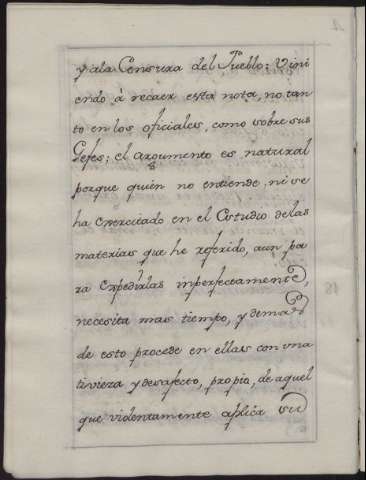 y ala Censura del Pueblo: Vini
endo à recaer esta nota, no tan
to en los oficiales, como sobre sus
Gefes; el argumento es natural
porque quien no entiende, ni se
ha exercitado en el Estudio delas
materias que he referido, aun pa
ra Expedirlas inperfectamente,
necesita mas tiempo, y demas
de esto procede en ellas con una
tivieza y desafecto, propio, de aquel
que violentamente aplica su